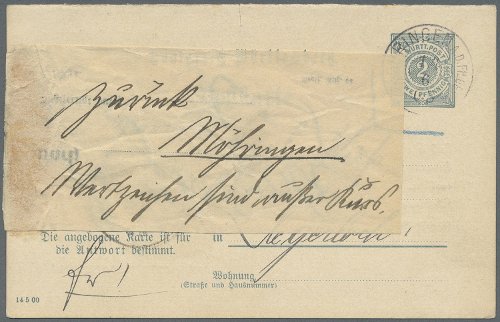 RINGEN A.D.FILD
WÜRTT.POST
2
ZWEI PFENNIG
zurück
Möhringen
Wertzeichen sind außer Kurs.
Die angebogene Karte ist für
die Antwort bestimmt.
in
Degerloch
Wohnung
(Straße und Hausnummer)
14 5 00